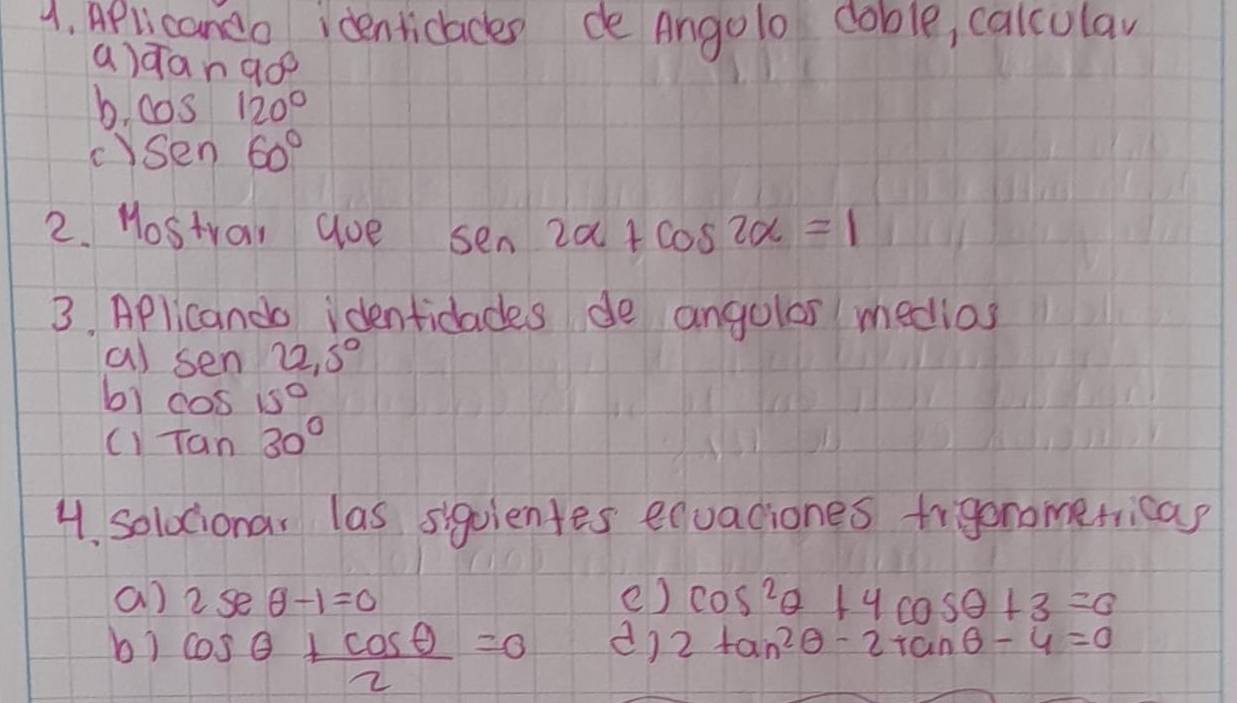 1. Aplicando identidades de Angulo doble, calcular
a) Tan 90°
b. cos 120°
c) Sen 60°
2. Mostrar que sen 2α + cos 2α = 1
3. Aplicando identidades de angulos medios
a) sen 22,5°
b) cos 15°
c) Tan 30°
4. Solucionar las siguientes ecuaciones trigonometricas
a) 2 se θ - 1 = 0 c) cos²θ + 4 cos θ + 3 = 0
b) cos θ + cos θ / 2 = 0 d) 2 tan²θ - 2 tan θ - 4 = 0